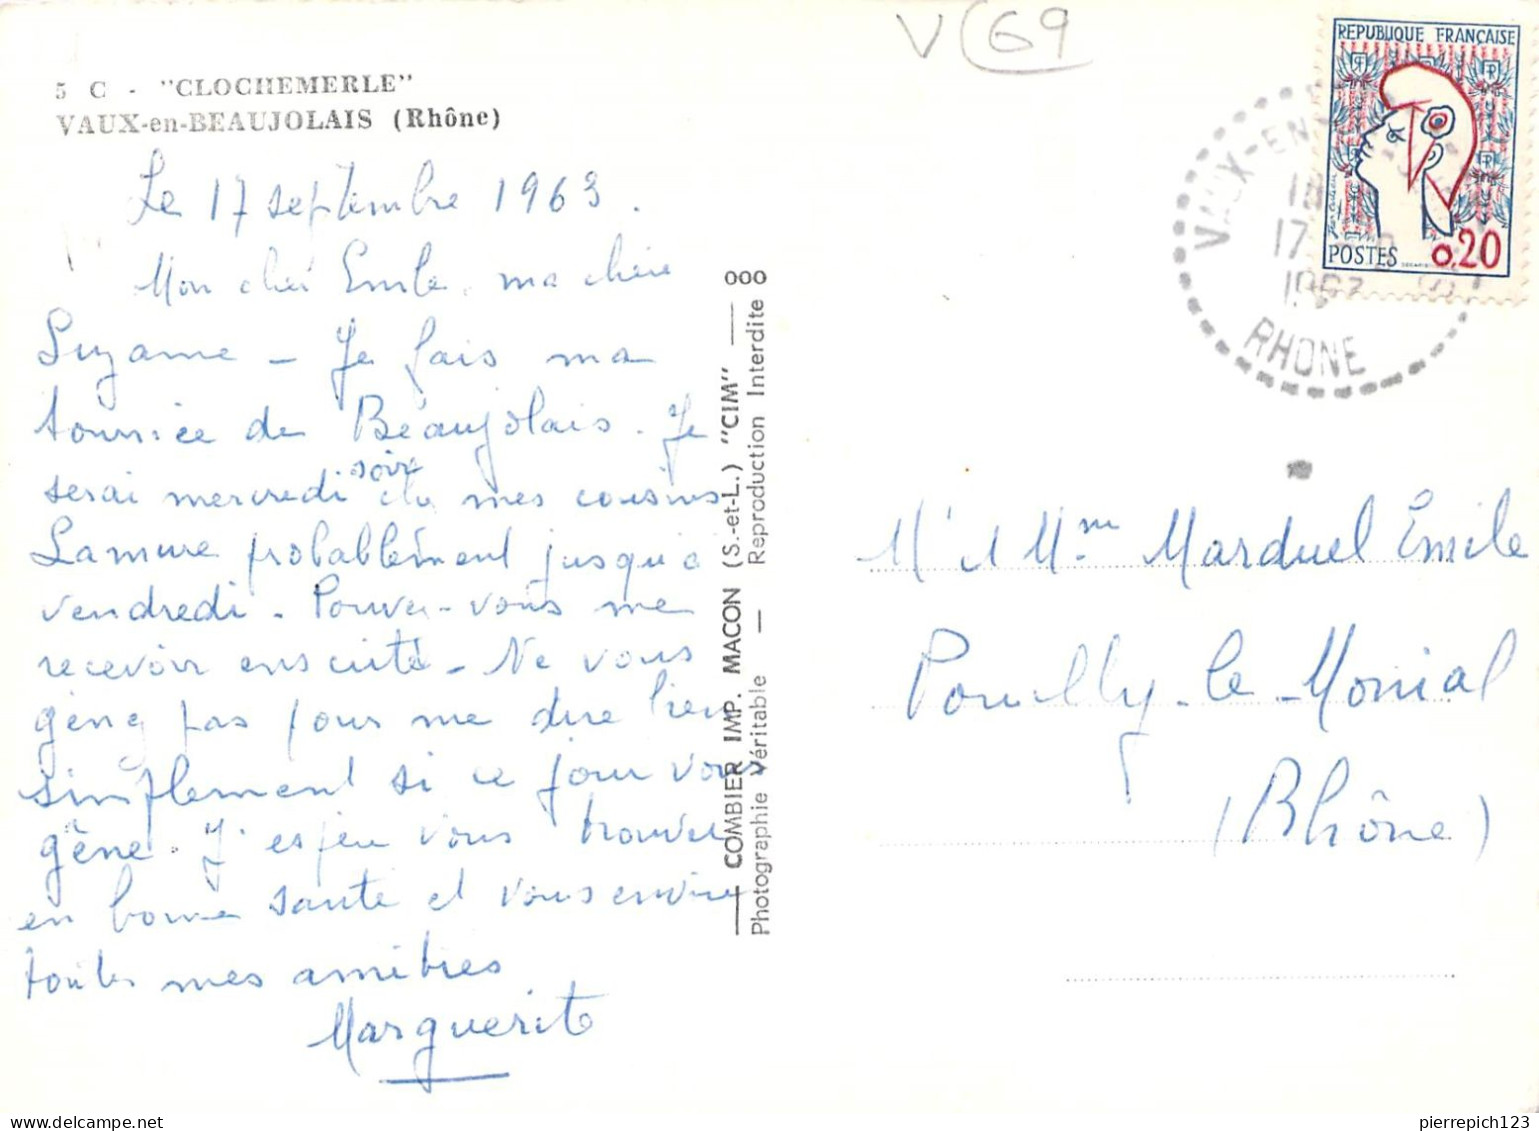 V 69
5 C - "CLOCHEMERLE"
VAUX-en-BEAUJOLAIS (Rhône)
Le 17 septembre 1963.
Mon cher Emile, ma chère
Suzanne - Je fais ma
tournée de Beaujolais. Je
serai mercredi soir chez mes cousins
Lamure probablement jusqu'à
vendredi - Pouvez-vous me
recevoir ensuite - Ne vous
gênez pas pour me dire bien
simplement si ce jour vous
gêne. J'espère vous trouver
en bonne santé et vous envoie
toutes mes amitiés
Marguerite
COMBIER IMP. MACON (S.-et-L.) "CIM" 000
Photographie Véritable — Reproduction Interdite
REPUBLIQUE FRANÇAISE
POSTES 0,20
VAUX-EN
18
17
1963
RHONE
Mr et Mme Marduel Emile
Pouilly-le-Monial
(Rhône)
pierrepich123